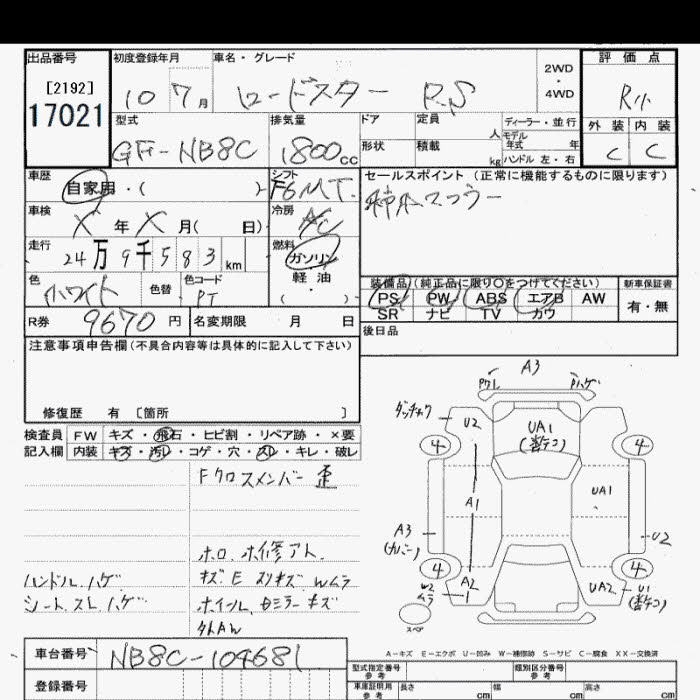 出品番号
[2192]
17021
初度登録年月
10 7月
車名・グレード
ロードスター RS
2WD
・
4WD
評価点
R小
外装 内装
C C
型式
GF-NB8C
排気量
1800cc
ドア
形状
定員
人
積載
kg
ディーラー・並行
モデル
年式 年
ハンドル 左・右
車歴
自家用・( )
シフト
F6 MT
セールスポイント(正常に機能するものに限ります)
柿本マフラー
車検
X年X月( 日)
冷房
AC
走行
24万9千583km
燃料
ガソリン
軽油
( )
色
ホワイト
色替
色コード
PT
装備品(純正品に限り〇をつけてください)
PS PW ABS エアB AW
SR ナビ TV カワ
新車保証書
有・無
R券 9670円
名変期限 月 日
後日品
注意事項申告欄(不具合内容等は具体的に記入して下さい)
修復歴 有 [箇所 ]
検査員
記入欄
FW キズ・飛石・ヒビ割・リペア跡・×要
内装 キズ・汚レ・コゲ・穴・スレ・キレ・破レ
Fクロスメンバー歪
ホロ、ホ修アト、
ハンドル ハゲ
キズE スリキズ Wムラ
シート、スレ、ハゲ
ホイル、Dミラーキズ
外AW
A3
ハゲ
U2
UA1
4
4
A1
UA1
A3
(カバー)
U2
4
4
A2
1
W2
ムラ
UA2
U1
スペア
A-キズ E-エクボ U-凹み W-補修跡 S-サビ C-腐食 XX-交換済
車台番号 NB8C-104681
登録番号
型式指定番号
参考
類別区分番号
参考
車庫証明用
参考
長さ cm
幅 cm
高さ cm